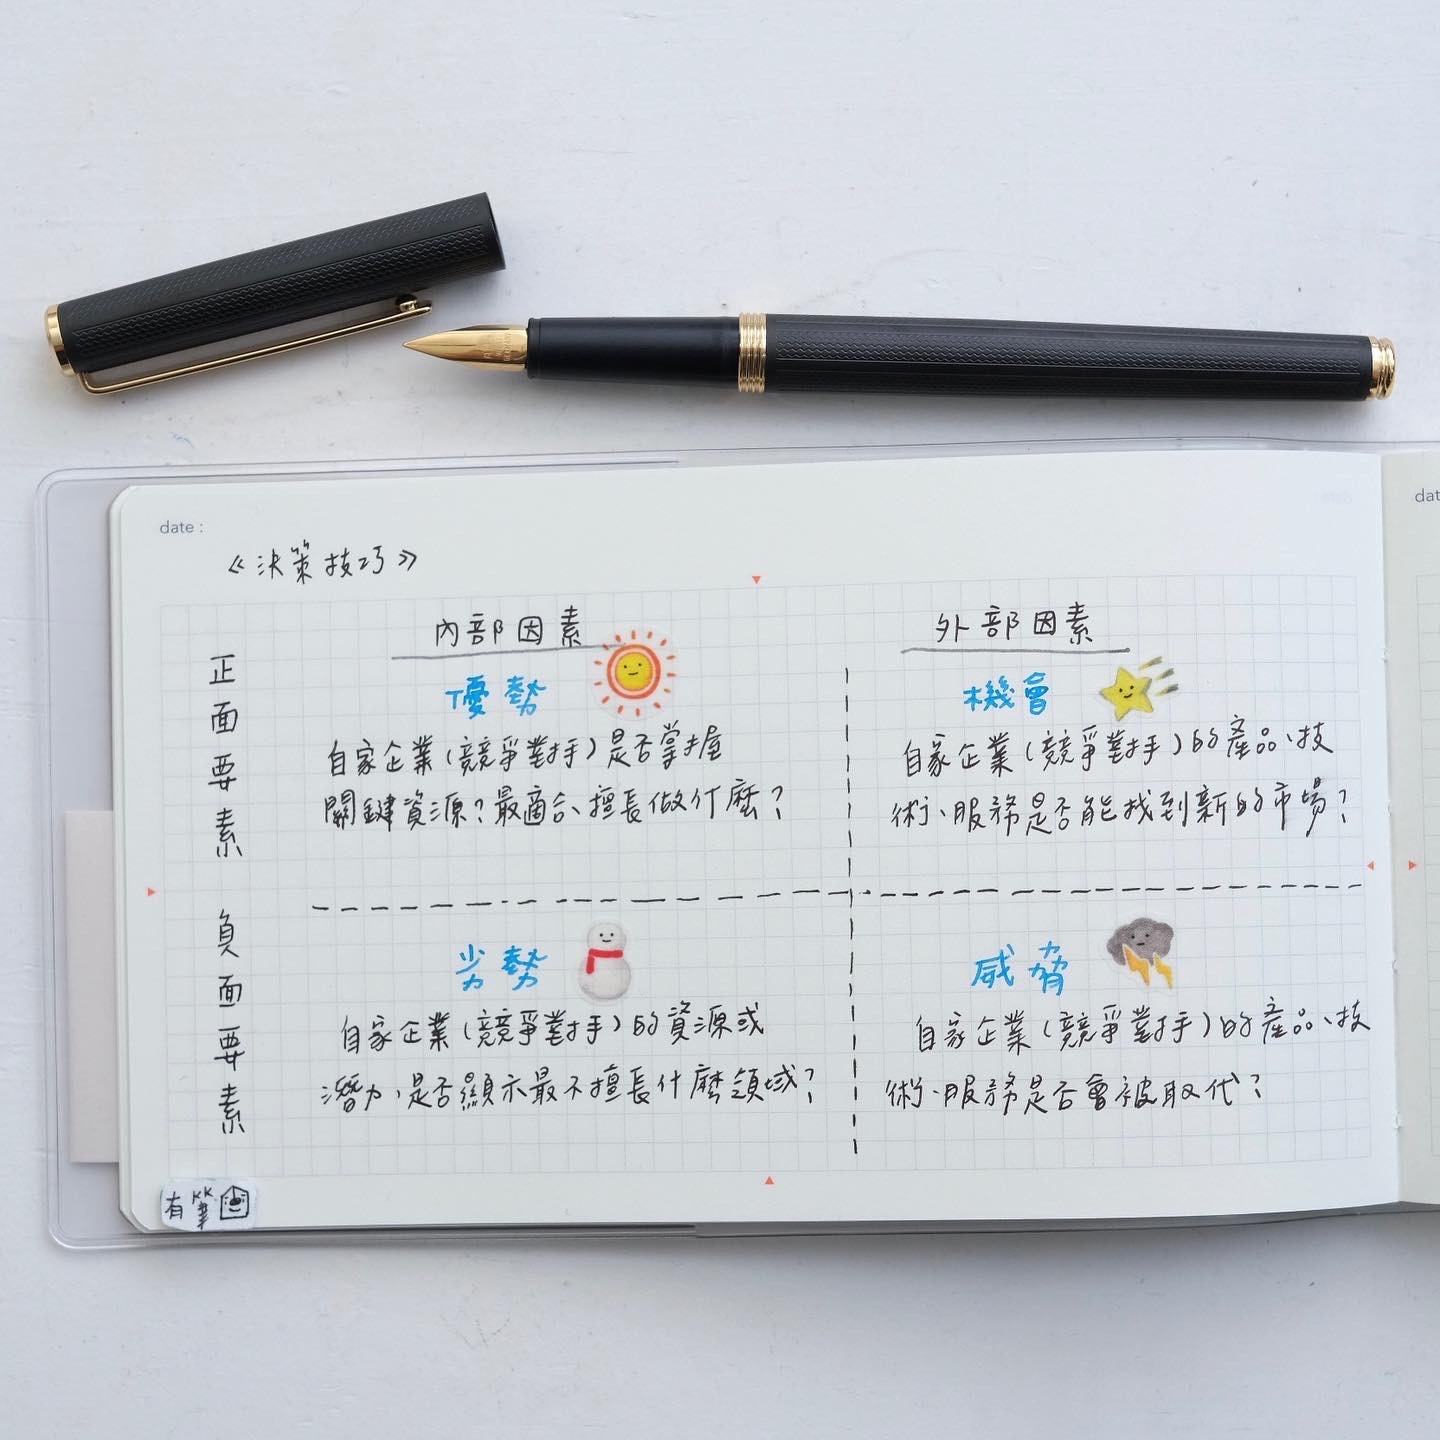 date :
《決策技巧》
內部因素
外部因素
正面要素
優勢
自家企業(競爭對手)是否掌握
關鍵資源?最適合、擅長做什麼?
機會
自家企業(競爭對手)的產品、技
術、服務是否能找到新的市場?
負面要素
劣勢
自家企業(競爭對手)的資源或
潛力,是否顯示最不擅長什麼領域?
威脅
自家企業(競爭對手)的產品、技
術、服務是否會被取代?
有筆
dat